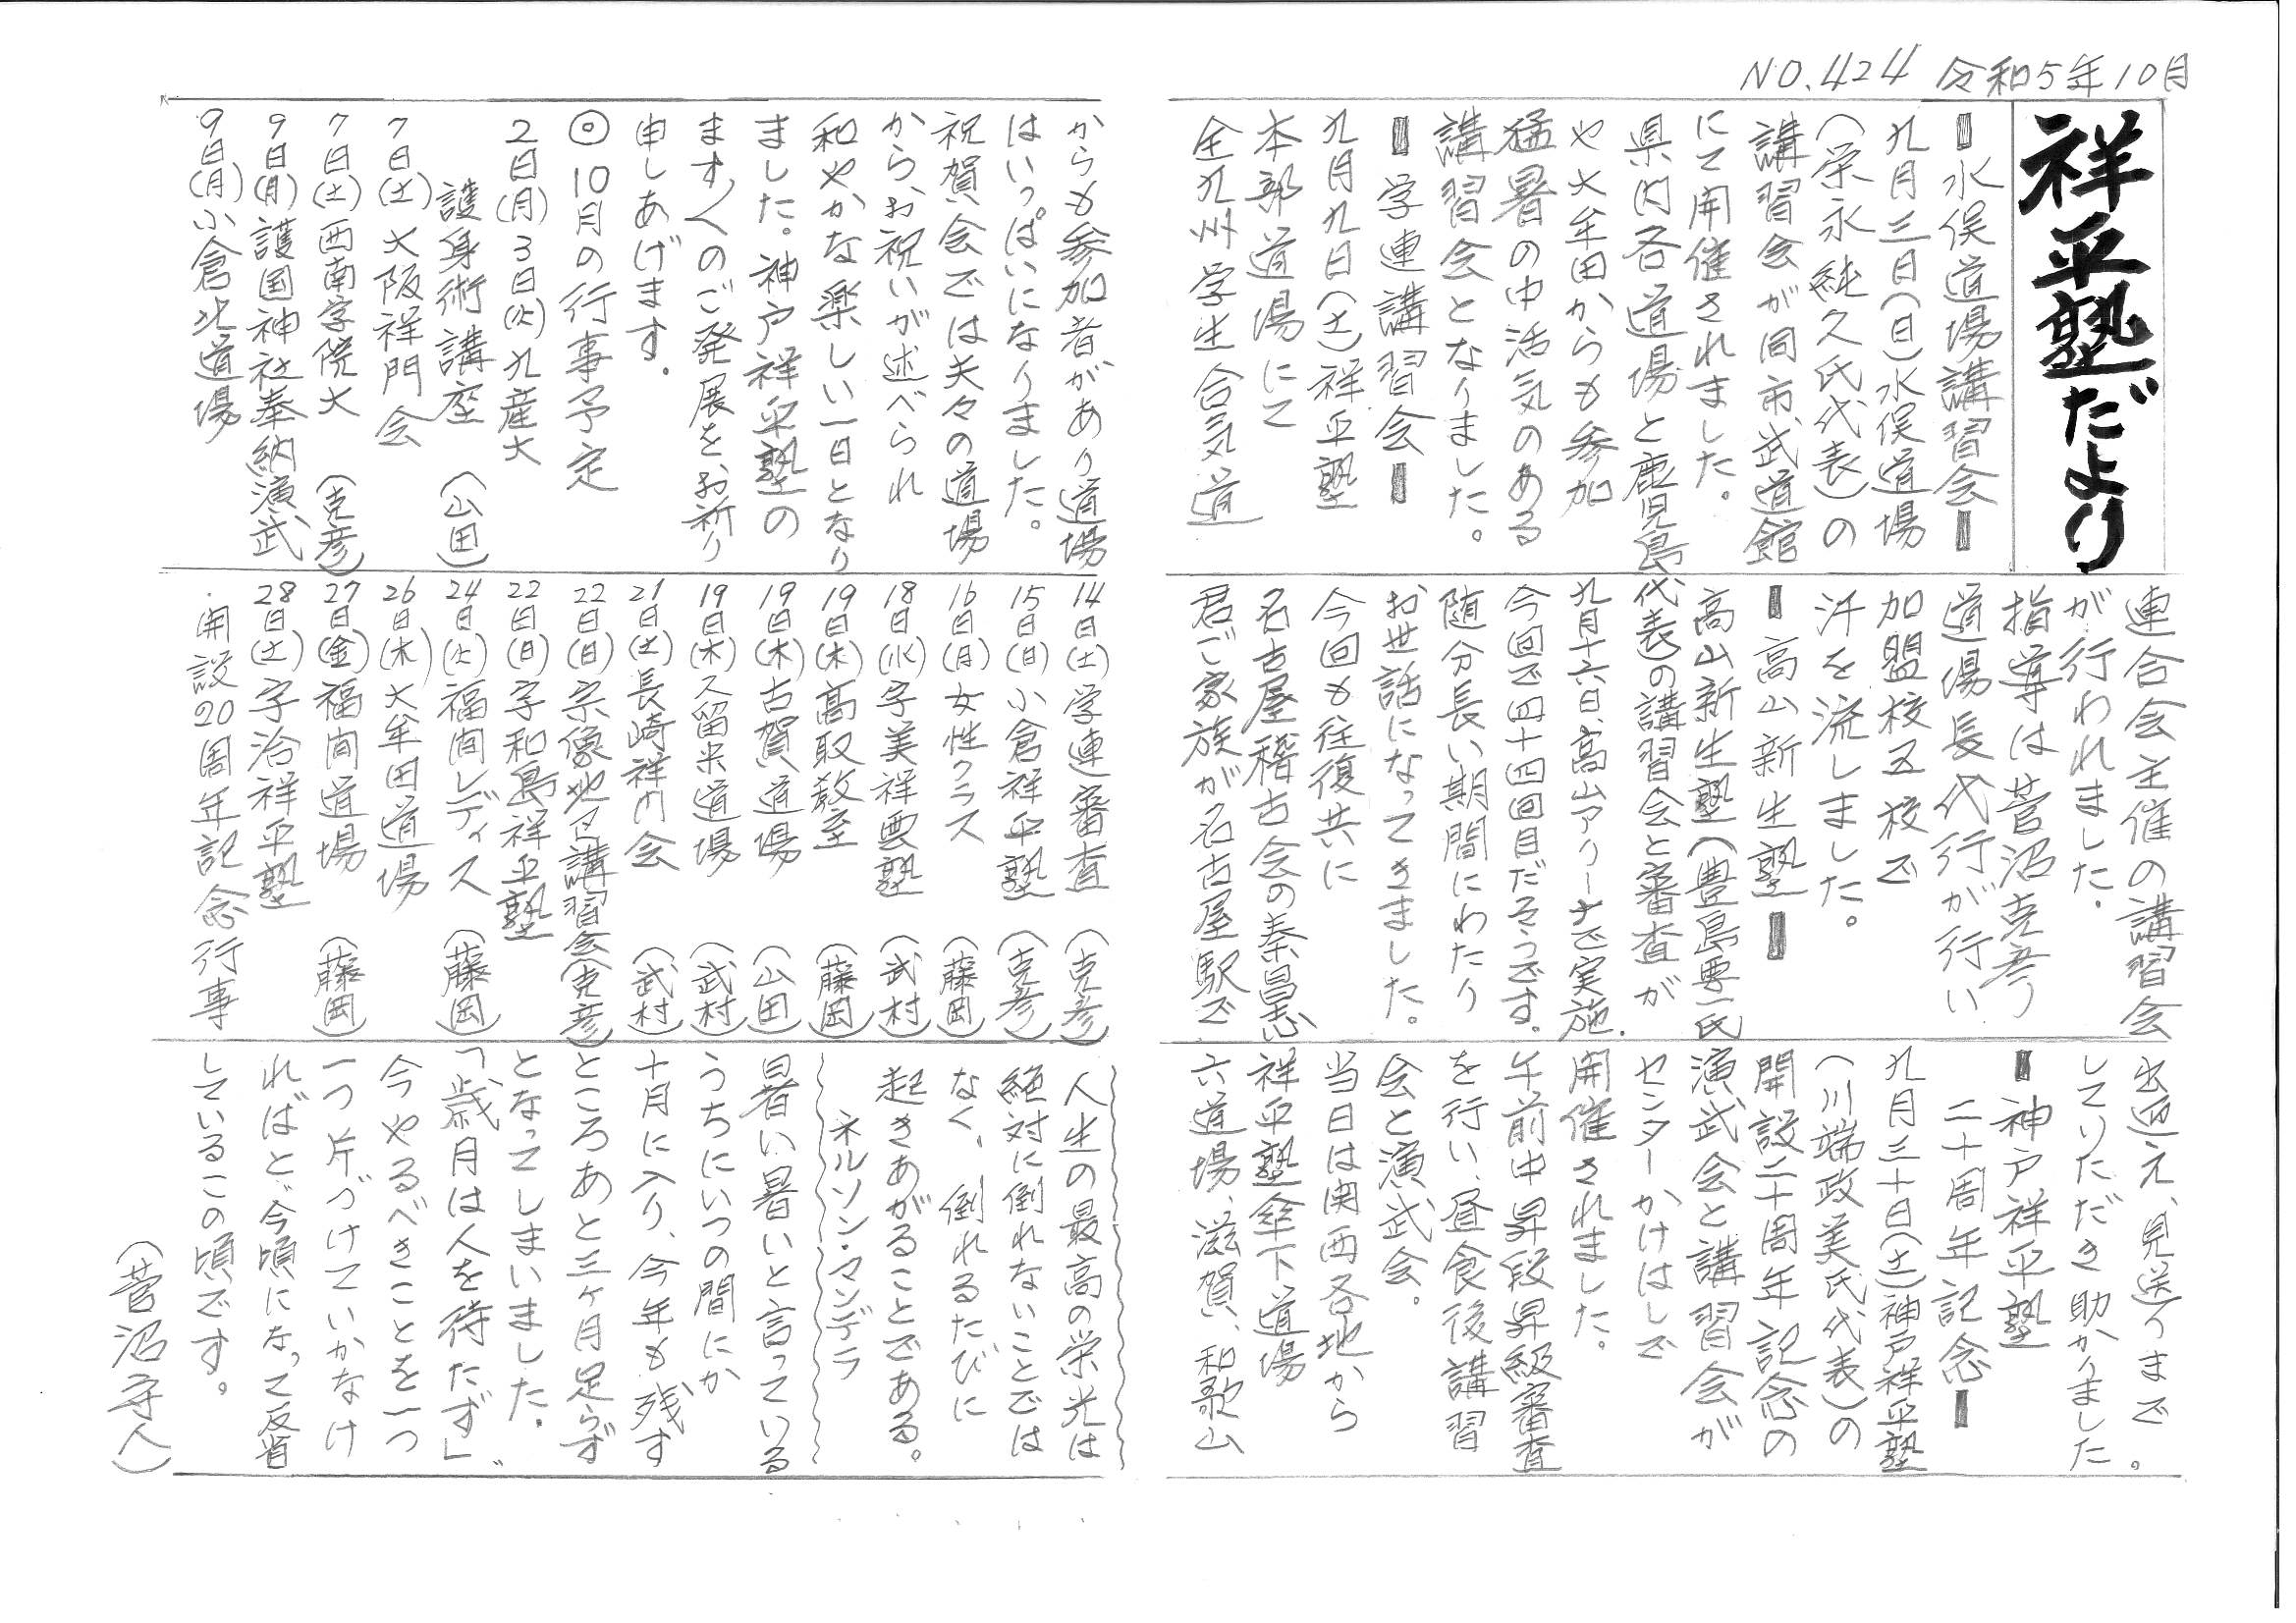 NO.424 令和5年10月
祥平塾だより
━水俣道場講習会━
九月三日(日)水俣道場
(栄永純久氏代表)の
講習会が同市、武道館
にて開催されました。
県内各道場と鹿児島
や大牟田からも参加
猛暑の中活気のある
講習会となりました。
━学連講習会━
九月九日(土)祥平塾
本部道場にて
全九州学生合気道
連合会主催の講習会
が行われました.
指導は菅沼克彦
道場長代行が行い
加盟校五校で
汗を流しました。
━高山新生塾━
高山新生塾(豊島要一氏
代表)の講習会と審査が
九月十六日、高山アリーナで実施.
今回で四十四回目だそうです。
随分長い期間にわたり
お世話になってきました。
今回も往復共に
名古屋稽古会の秦昌志
君ご家族が名古屋駅で
出迎え、見送りまで。
してりただき助かりました
━神戸祥平塾
二十周年記念━
九月三十日(土)神戸祥平塾
(川端政美氏代表)の
開設二十周年記念の
演武会と講習会が
センターかけはしで
開催されました。
午前中昇段昇級審査
を行い、昼食後講習
会と演武会。
当日は関西各地から
祥平塾傘下道場
六道場、滋賀、和歌山
からも参加者があり道場
はいっぱいになりました。
祝賀会では夫々の道場
から、お祝いが述べられ
和やかな楽しい一日となり
ました。神戸祥平塾の
ます〱のご発展をお祈り
申しあげます。
◎10月の行事予定
2日(月)3日(火)九産大
護身術講座 (山田)
7日(土)大阪祥門会
7日(土)西南学院大 (克彦)
9日(月)護国神社奉納演武
9日(月)小倉北道場
14日(土)学連審査 (克彦)
15日(日)小倉祥平塾 (克彦)
16日(月)女性クラス (藤岡)
18日(水)宇美祥雲塾 (武村)
19日(木)高取教室 (藤岡)
19日(木)古賀道場 (山田)
19日(木)久留米道場 (武村)
21日(土)長崎祥門会 (武村)
22日(日)宗像地区講習会(克彦)
22日(日)宇和島祥平塾
24日(火)福間レディス (藤岡)
26日(木)大牟田道場
27日(金)福間道場 (藤岡)
28日(土)宇治祥平塾
.開設20周年記念行事
人生の最高の栄光は
絶対に倒れないことでは
なく、倒れるたびに
起きあがることである。
ネルソン・マンデラ
暑い暑いと言っている
うちにいつの間にか
十月に入り、今年も残す
ところあと三ヶ月足らず
となってしまいました.
「歳月は人を待たず」
今やるべきことを一つ
一つ片づけていかなけ
ればと、今頃になって反省
しているこの頃です。
(菅沼守人)